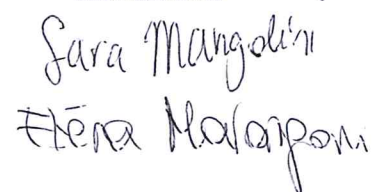 Sara Mangolini
Elena Marangoni